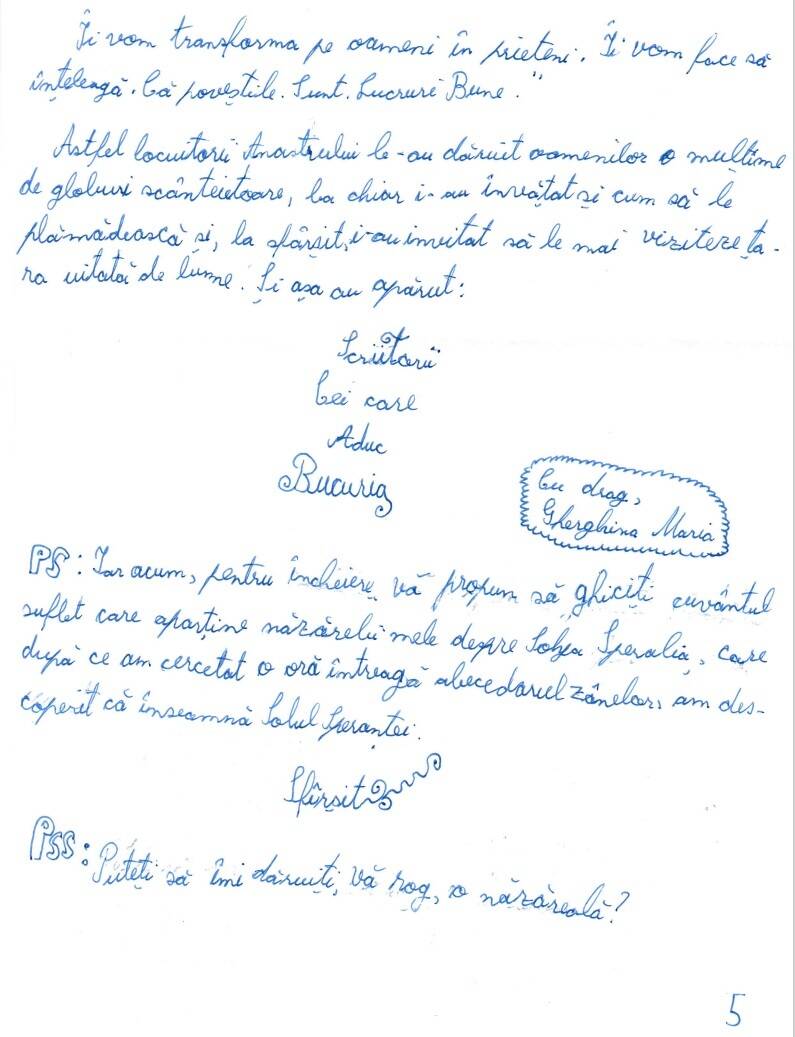 Îi vom transforma pe oameni în prieteni. Îi vom face să
înțeleagă. Că poveștile. Sunt. Lucruri Bune."
Astfel locuitorii Anastrului le-au dăruit oamenilor o mulțime
de globuri scânteietoare, ba chiar i-au învățat și cum să le
plămădească și, la sfârșit, i-au invitat să le mai viziteze ța-
ra uitată de lume. Și așa au apărut:
Scriitorii
Cei care
Aduc
Bucuria
Cu drag,
Gherghina Maria
PS: Iar acum, pentru încheiere, vă propun să ghiciți cuvântul
suflet care aparține năzărelii mele despre Solzea Speralia, care
după ce am cercetat o oră întreagă abecedarul zânelor, am des-
coperit că înseamnă Solul Speranței.
Sfârșit
PSS: Puteți să îmi dăruiți, vă rog, o năzăreală?
5